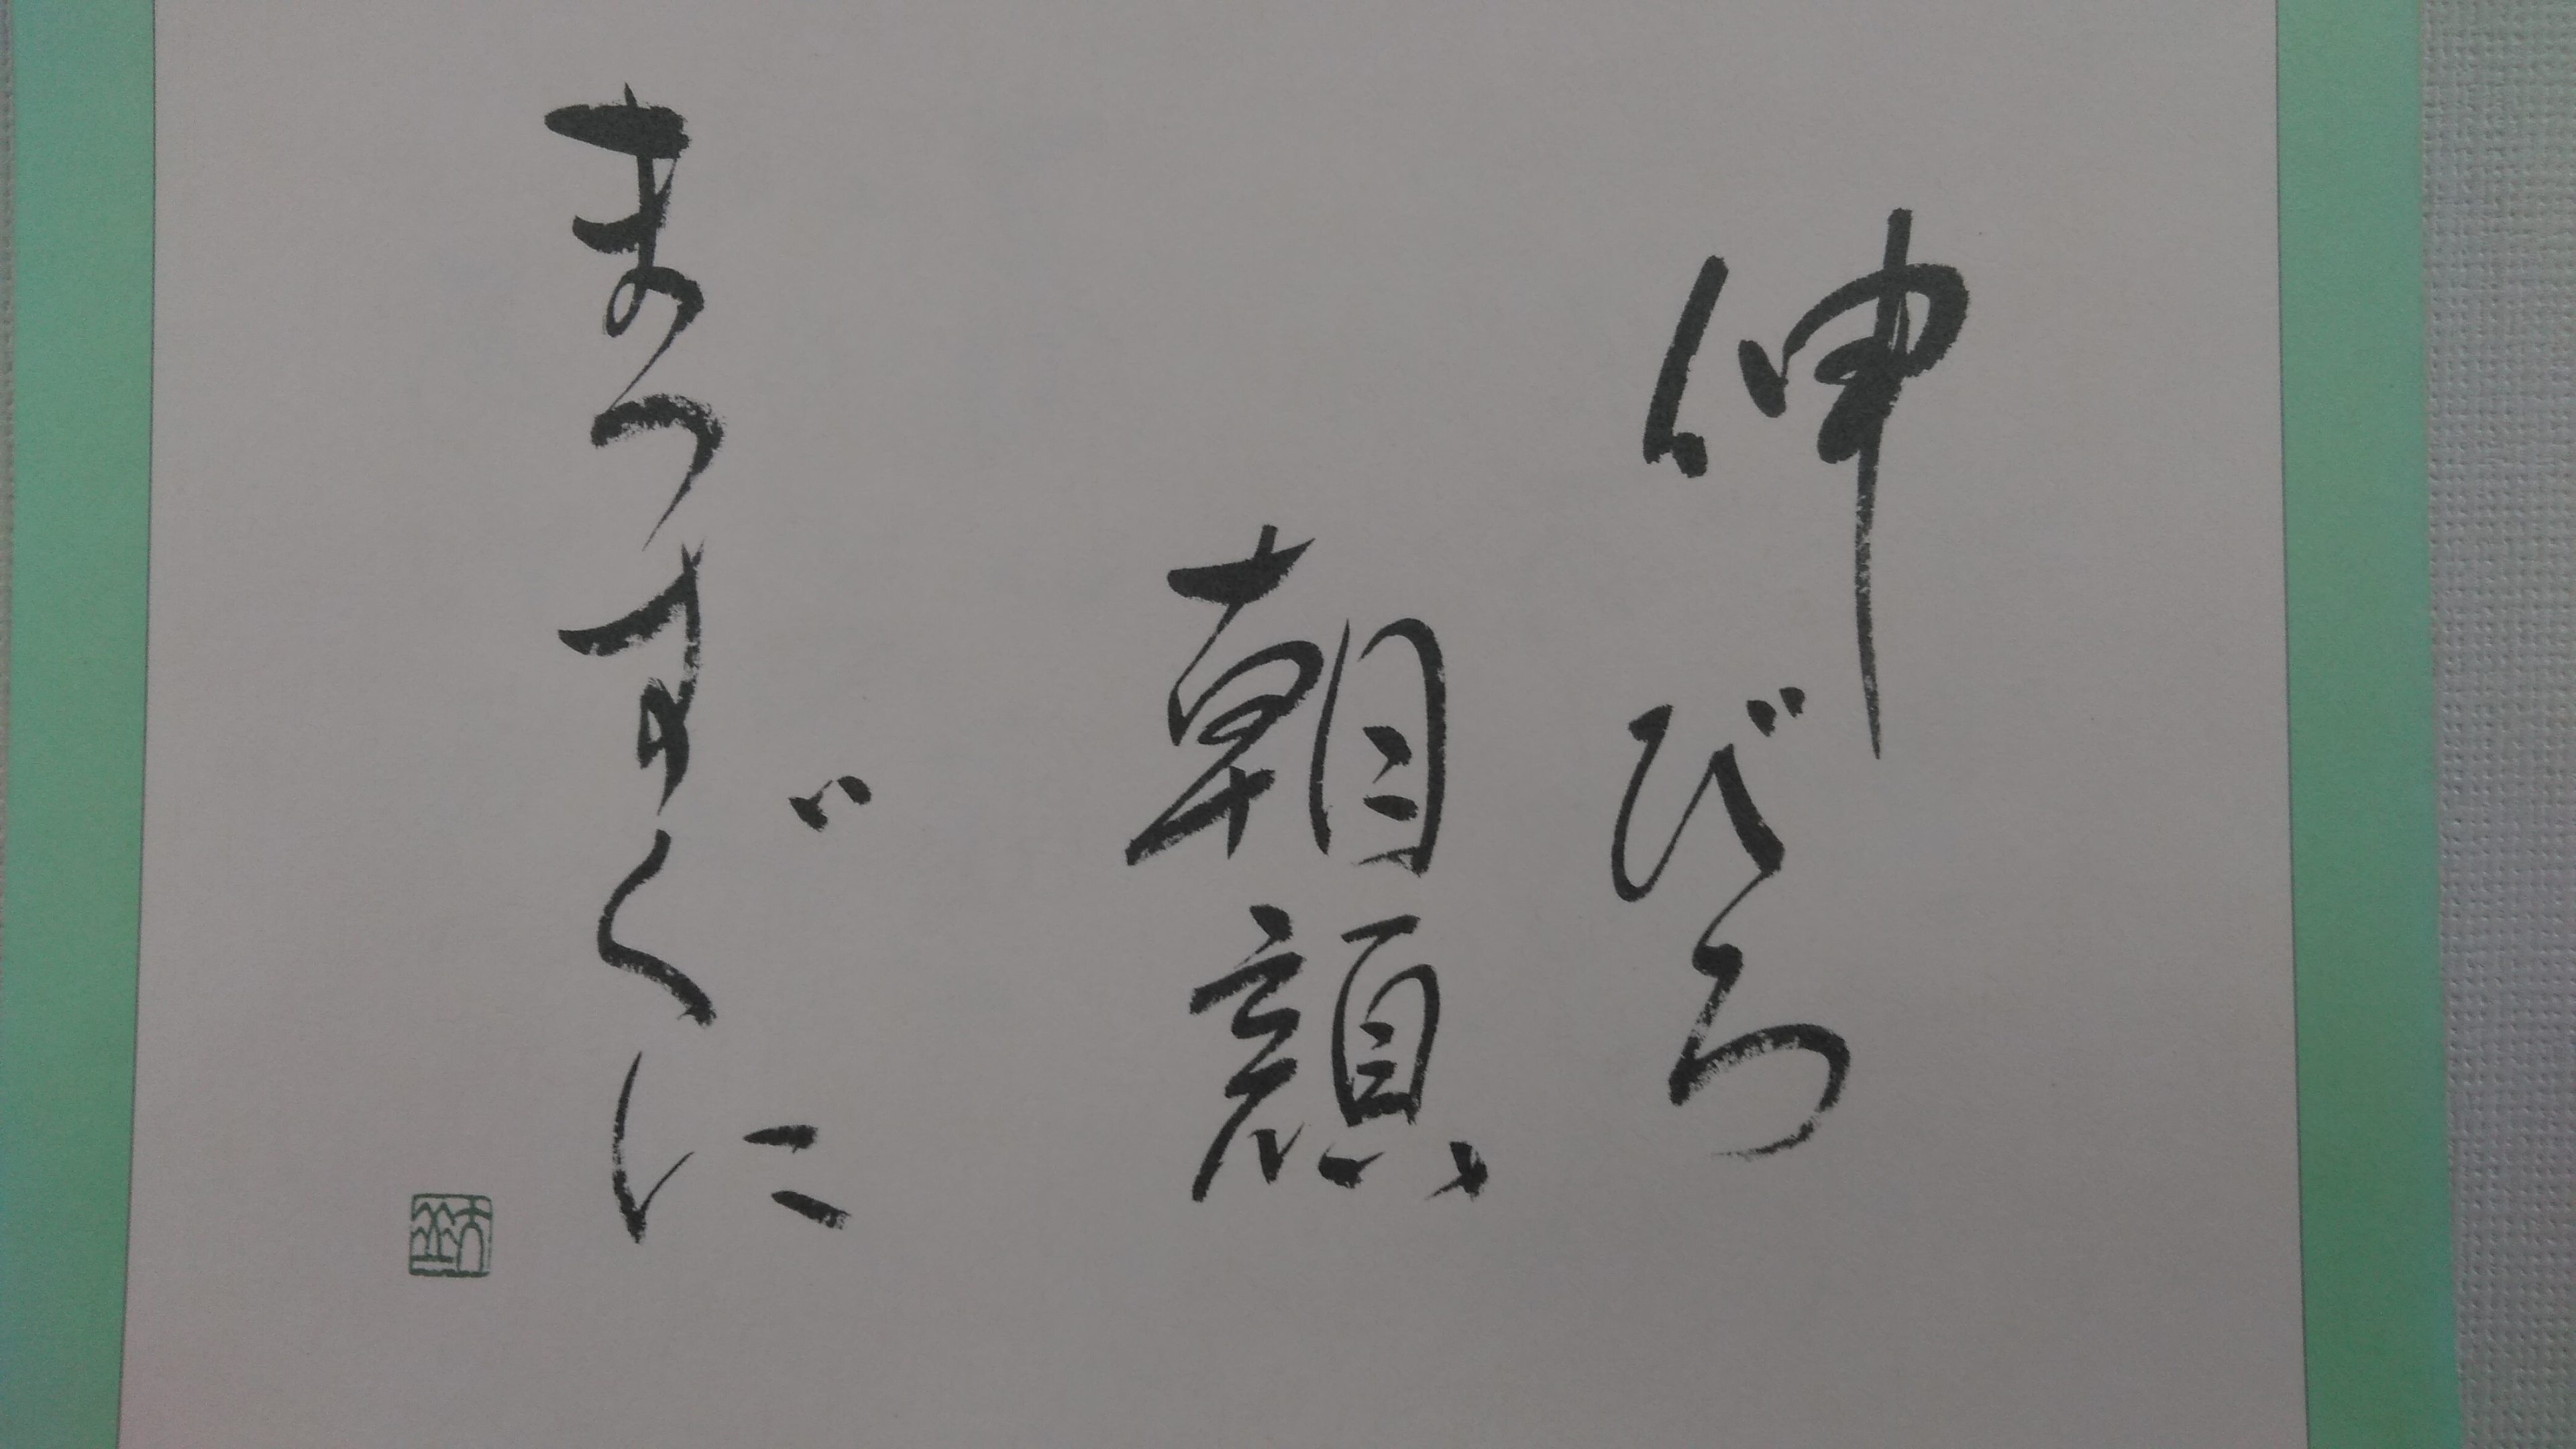 伸びろ
朝顔
まつすぐに